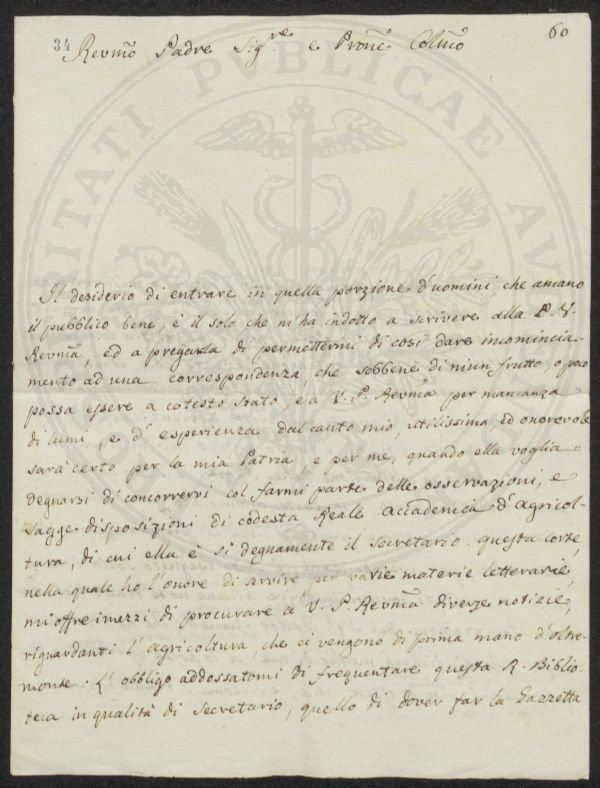 34
60
Revmõ Padre Sigre e Prone Colmõ
Il desiderio di entrare in quella porzione d'uomini che amano
il pubblico bene, è il solo che m'ha indotto a scrivere alla P. V.
Revmã, ed a pregarla di permettermi di così dare incomincia-
mento ad una correspondenza, che sebbene di niun frutto, o poco
possa essere a cotesto stato, e a V. P. Revmã per mancanza
di lumi, e d'esperienza dal canto mio, utilissima ed onorevole
sarà certo per la mia Patria e per me, quando ella voglia
degnarsi di concorrervi col farmi parte delle osservazioni, e
sagge disposizioni di codesta Reale accademia d'agricol-
tura, di cui ella è sì degnamente il secretario. questa corte
nella quale ho l'onore di servire per varie materie letterarie,
mi offre i mezzi di procurare a V. P. Revmã diverse notizie,
riguardanti l'agricoltura, che ci vengono di prima mano d'oltre-
monte. L'obbligo addossatomi di frequentare questa R. Biblio-
teca in qualità di secretario, quello di dover far la Gazzetta